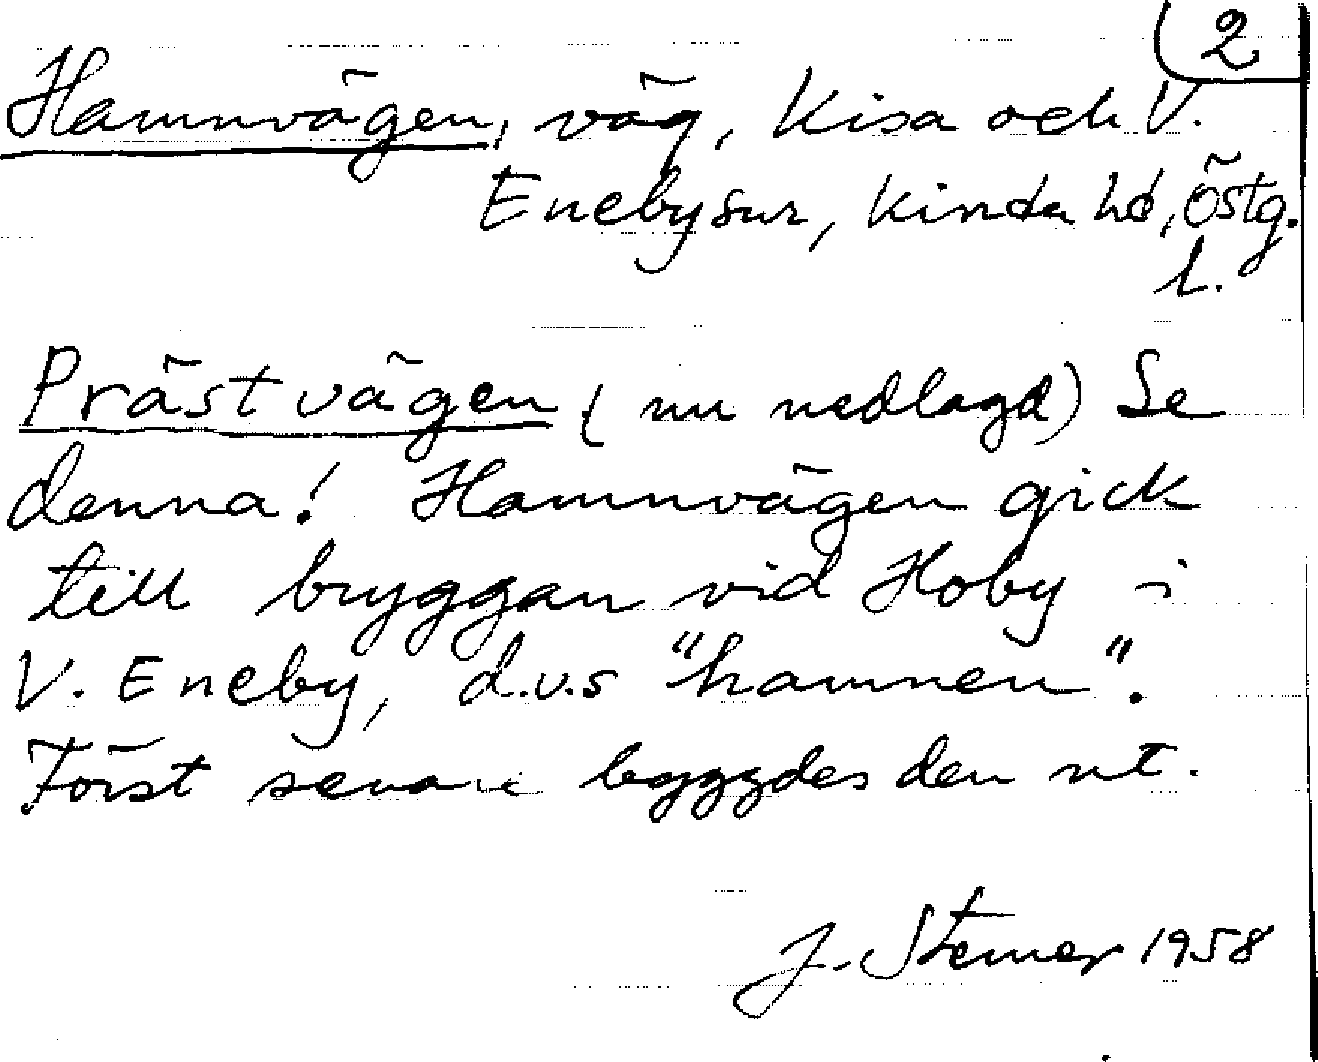 2
Hamnvägen, väg, Kisa och V.
Eneby snr, Kinda hd, Östg.
l.
Prästvägen (nu nedlagd) Se
denna! Hamnvägen gick
till bryggan vid Hoby i
V. Eneby, d.v.s "hamnen".
Först senare byggdes den ut.
J. Stemer 1958